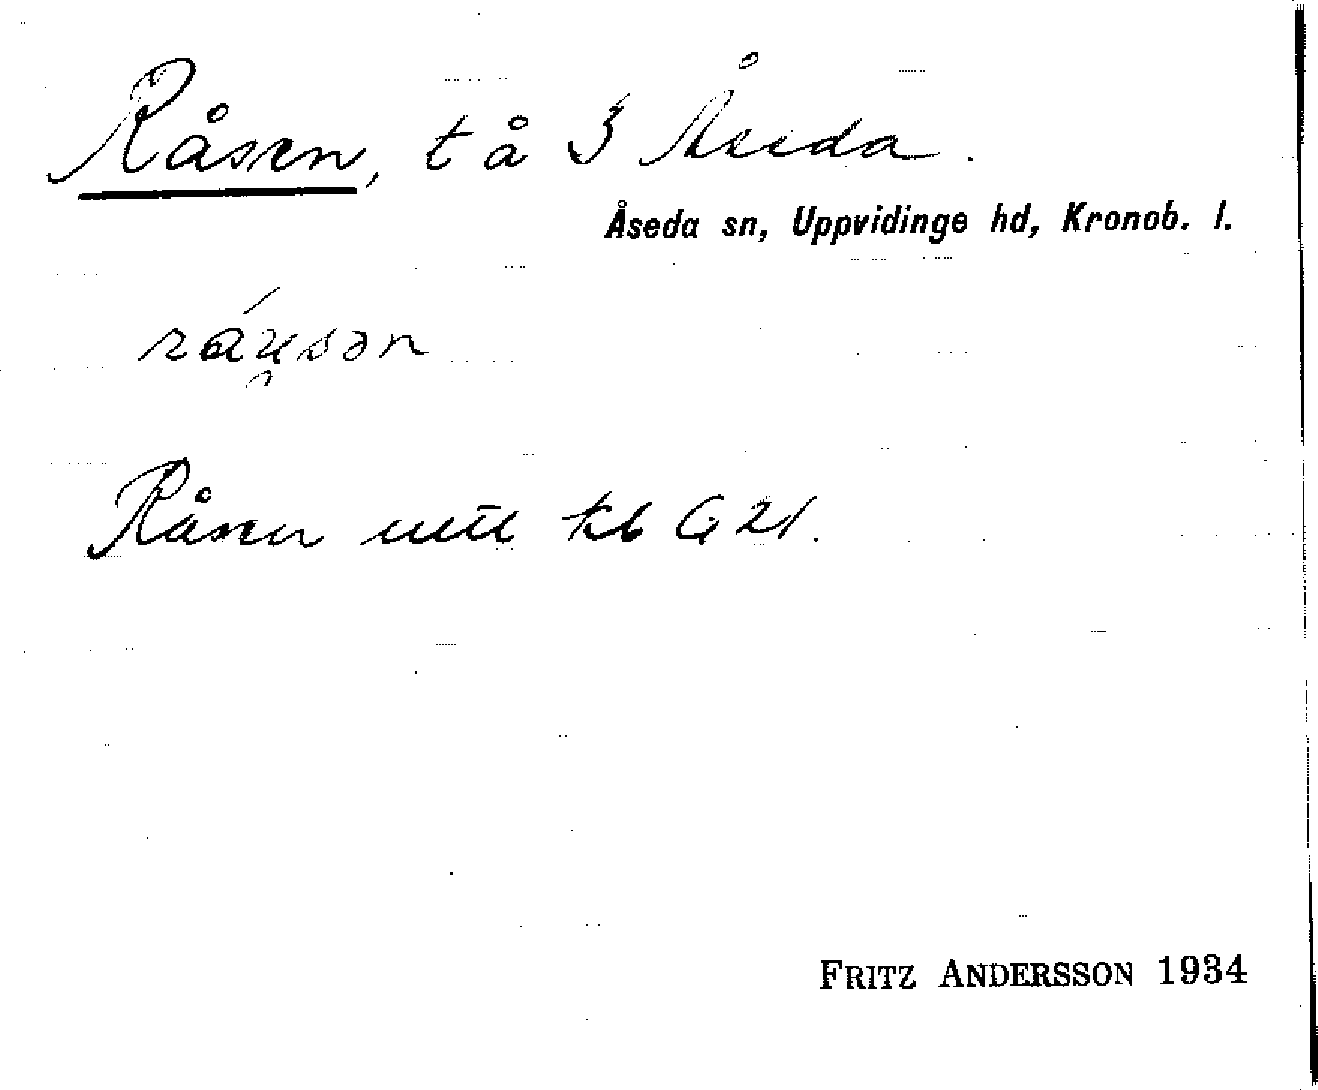 Råsen, t å 3 Åseda.
Åseda sn, Uppvidinge hd, Kronob. l.
Råsen kb G 21.
FRITZ ANDERSSON 1934